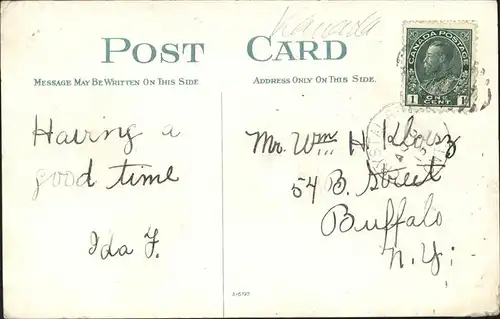 Kanada
POST CARD
MESSAGE MAY BE WRITTEN ON THIS SIDE
ADDRESS ONLY ON THIS SIDE.
CANADA POSTAGE
1 ONE CENT 1
Having a
good time
Ida F.
Mr. Wm H
54 B. Street
Buffalo
N.Y.